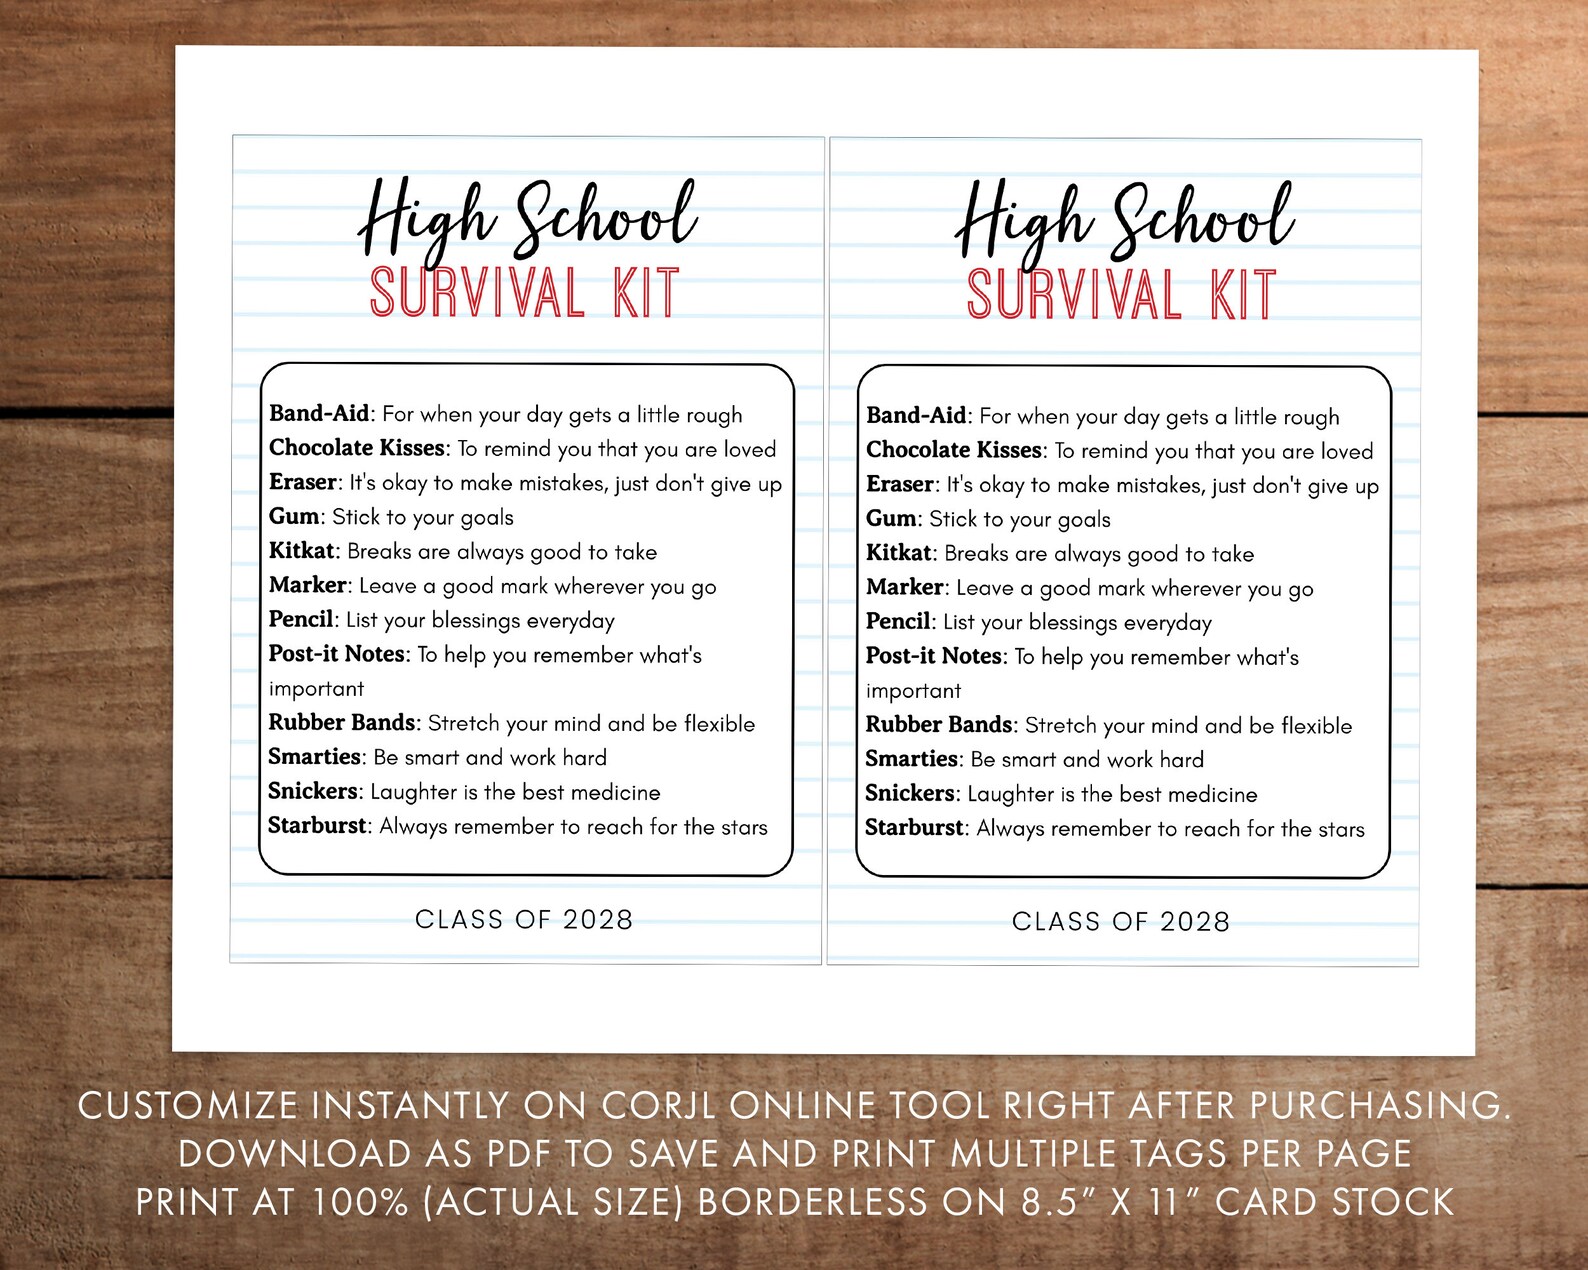 High School
SURVIVAL KIT
Band-Aid: For when your day gets a little rough
Chocolate Kisses: To remind you that you are loved
Eraser: It's okay to make mistakes, just don't give up
Gum: Stick to your goals
Kitkat: Breaks are always good to take
Marker: Leave a good mark wherever you go
Pencil: List your blessings everyday
Post-it Notes: To help you remember what's
important
Rubber Bands: Stretch your mind and be flexible
Smarties: Be smart and work hard
Snickers: Laughter is the best medicine
Starburst: Always remember to reach for the stars
CLASS OF 2028
High School
SURVIVAL KIT
Band-Aid: For when your day gets a little rough
Chocolate Kisses: To remind you that you are loved
Eraser: It's okay to make mistakes, just don't give up
Gum: Stick to your goals
Kitkat: Breaks are always good to take
Marker: Leave a good mark wherever you go
Pencil: List your blessings everyday
Post-it Notes: To help you remember what's
important
Rubber Bands: Stretch your mind and be flexible
Smarties: Be smart and work hard
Snickers: Laughter is the best medicine
Starburst: Always remember to reach for the stars
CLASS OF 2028
CUSTOMIZE INSTANTLY ON CORJL ONLINE TOOL RIGHT AFTER PURCHASING.
DOWNLOAD AS PDF TO SAVE AND PRINT MULTIPLE TAGS PER PAGE
PRINT AT 100% (ACTUAL SIZE) BORDERLESS ON 8.5” X 11” CARD STOCK